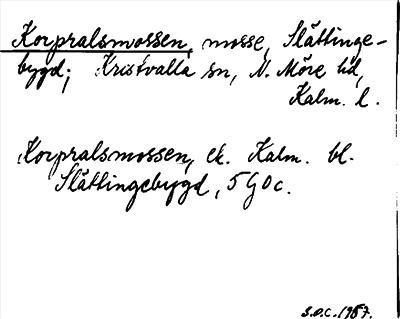 Korpralsmossen, mosse, Slättinge-
bygd; Kristvalla sn, N. Möre hd,
Kalm. l.
Korpralsmossen, ek. Kalm. bl.
Slättingebygd, 5G0c.
S.O.C. 1957.